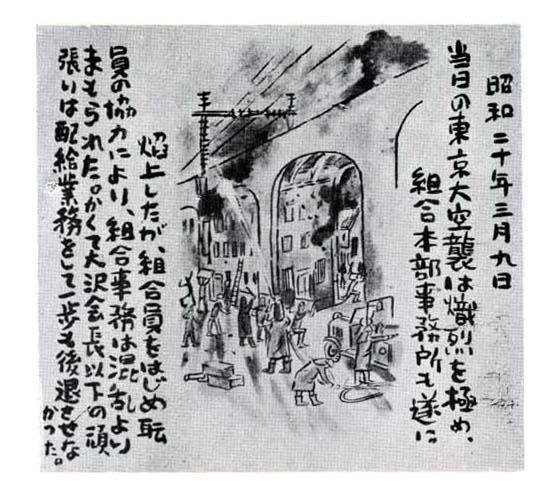 昭和二十年三月九日
当日の東京大空襲は熾烈を極め、
組合本部事務所も遂に
焔上したが、組合員をはじめ転
員の協力により、組合事務は混乱より
まもられた。かくて大沢会長以下の頑
張りは配給業務をして一歩も後退させな
かつた。